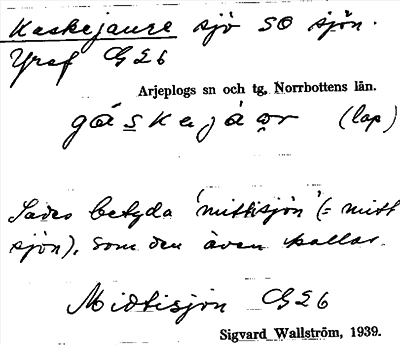 Kaskejaure sjö SO sjön.
Yraf G26
Arjeplogs sn och tg, Norrbottens län.
gáskajáọr (lap)
Sades betyda 'mittisjön' (= mitt
sjön), som den även kallas.
Midtisjön G26
Sigvard Wallström, 1939.